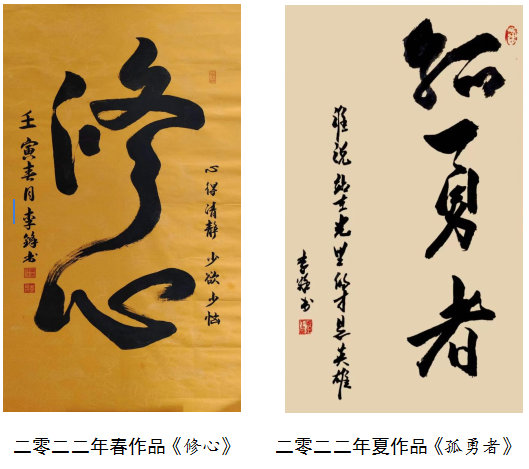 修心
心得清静 少欲少恼
壬寅春月 李锋书
二零二二年春作品《修心》
孤勇者
谁说站在光里的才是英雄
李锋书
二零二二年夏作品《孤勇者》